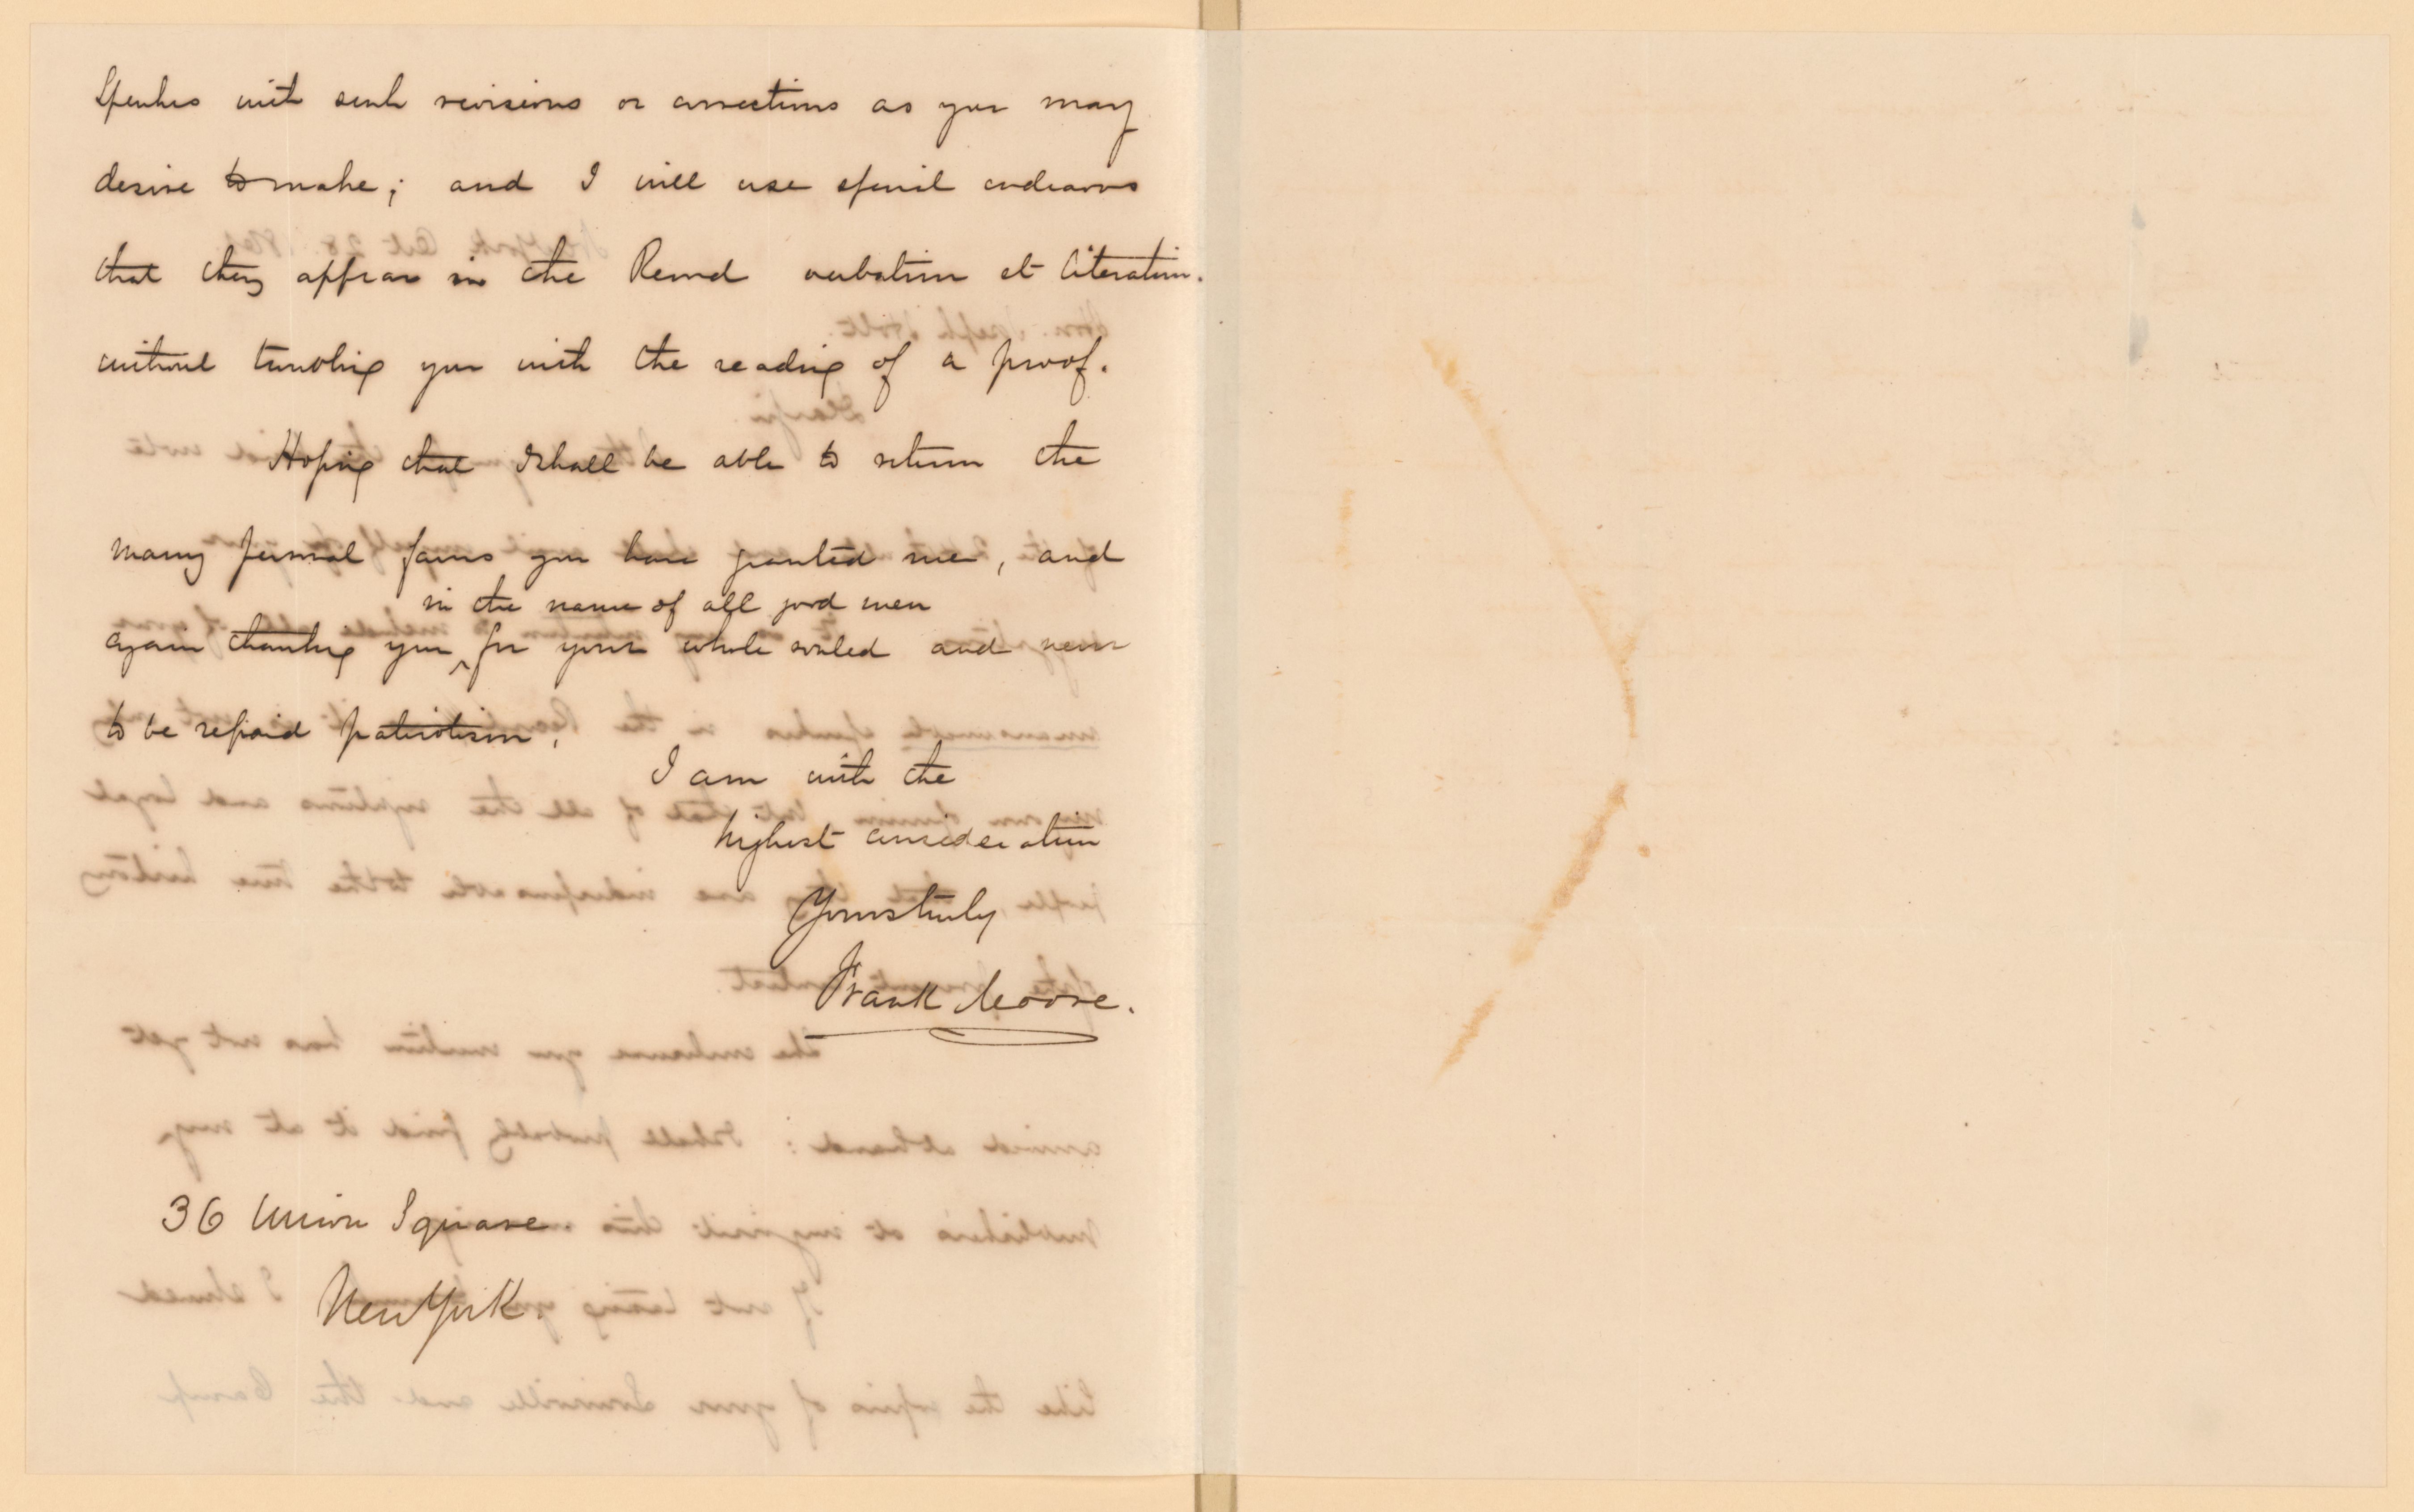 Speeches with such revisions or corrections as you may
desire to make; and I will use special endeavors
that they appear in the Record verbatim et literatim.
without troubling you with the reading of a proof.
Hoping that I shall be able to return the
many personal favors you have granted me, and
in the name of all good men
again thanking you ^ for your whole souled and never
to be repaid patriotism,
I am with the
highest consideration
Yours truly
Frank Moore.
36 Union Square
New York.